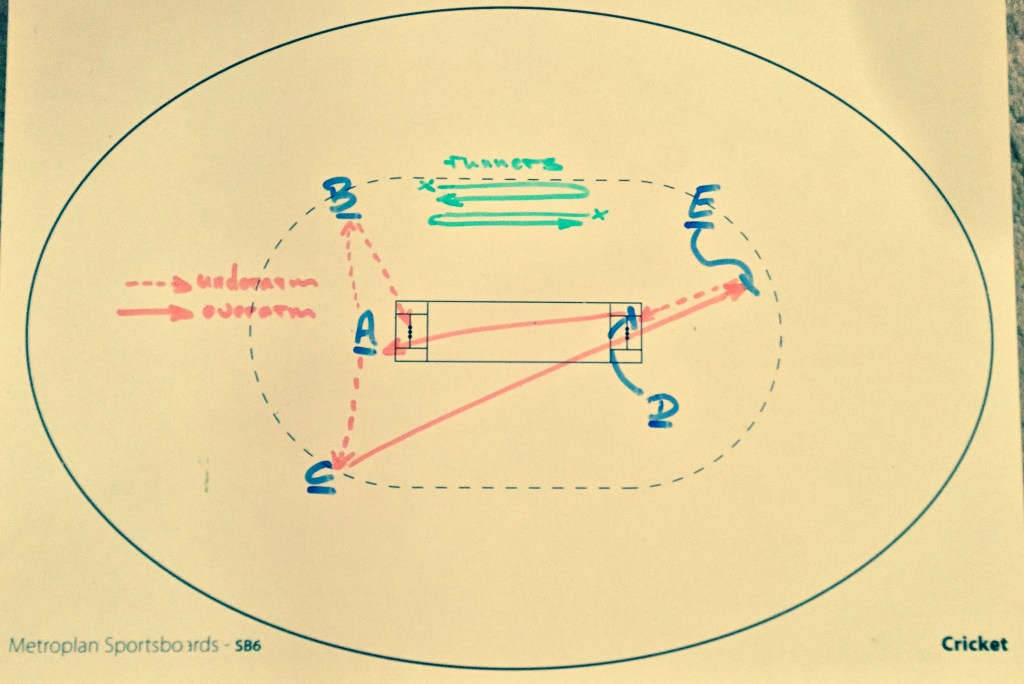 runners
B
E
underarm
overarm
A
D
C
Metroplan Sportsboards - SB6
Cricket